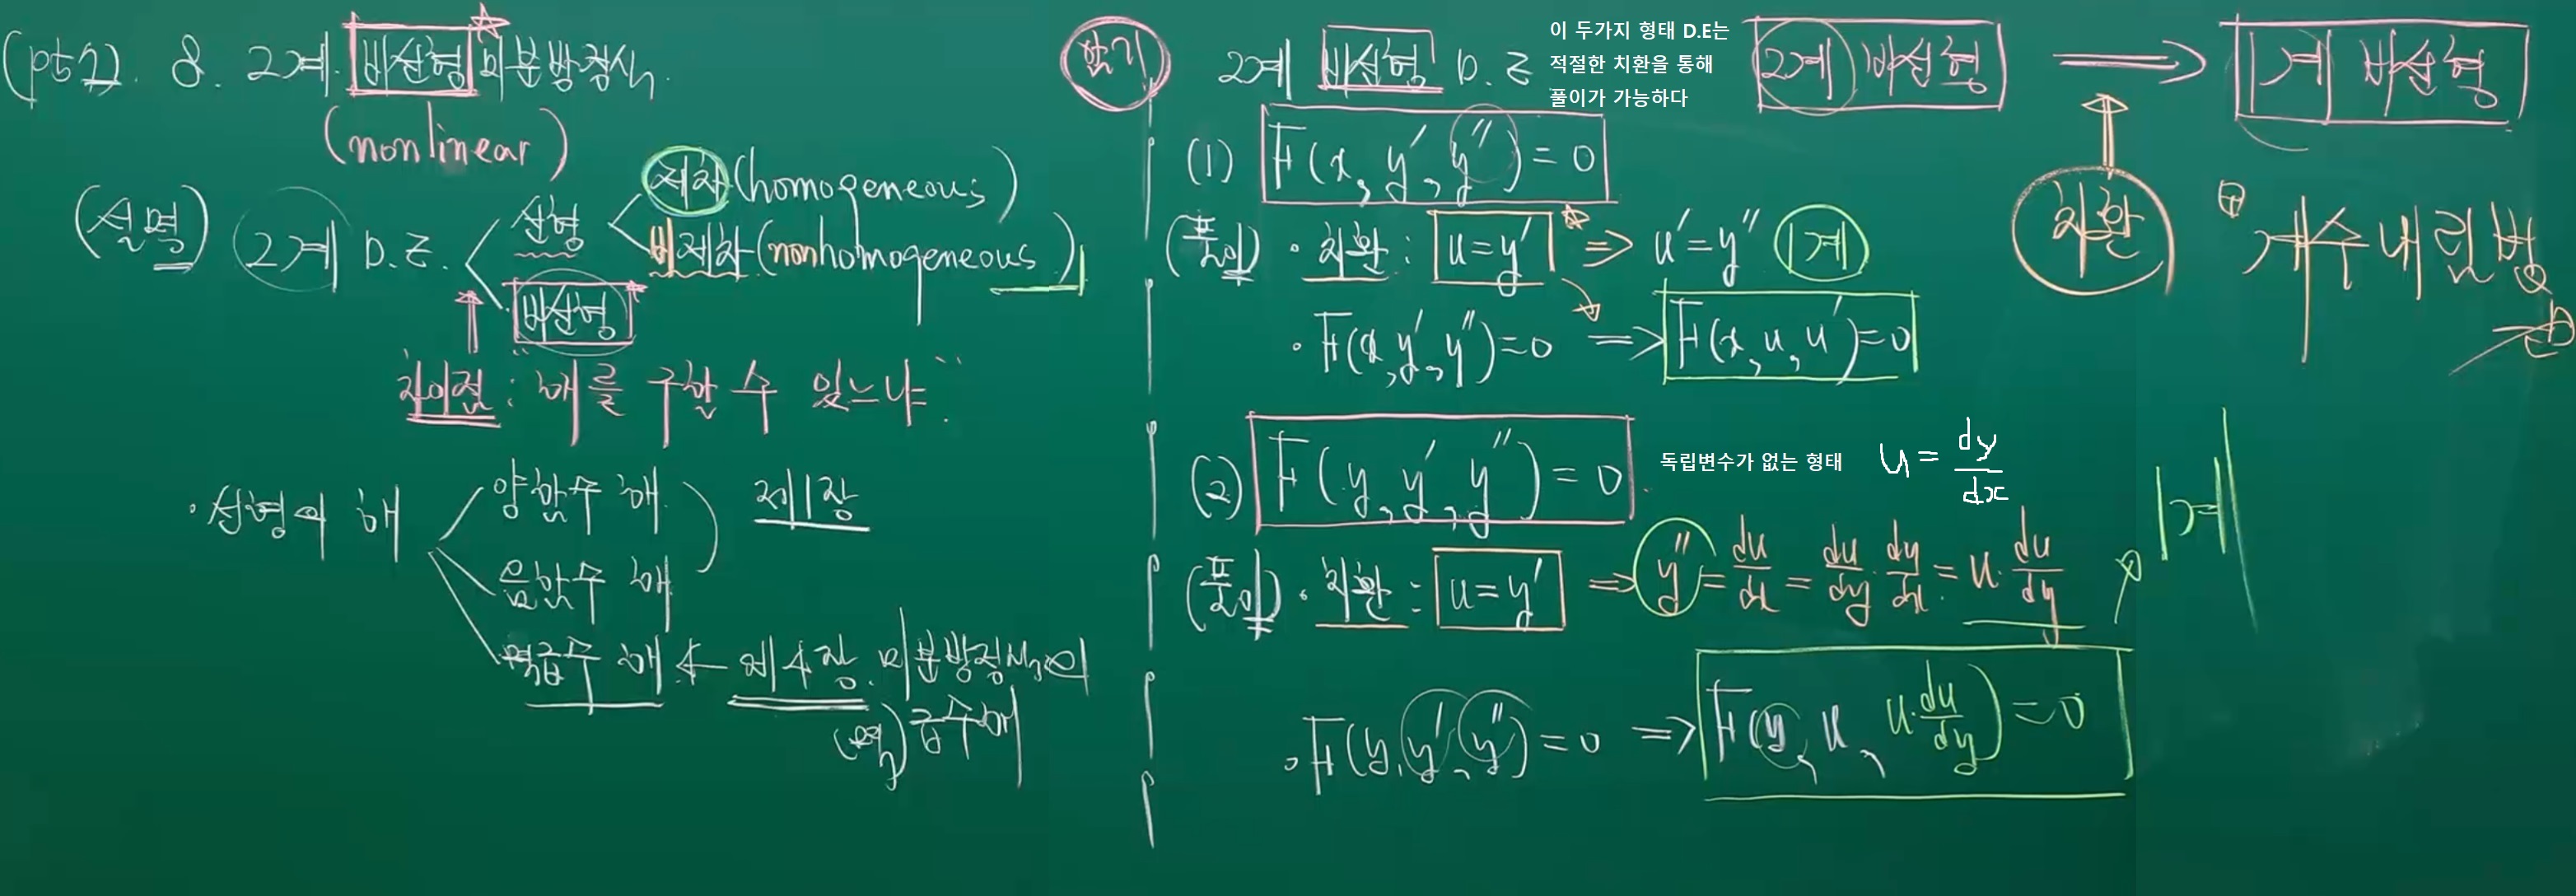 (pt2). 8. 2계 비선형 미분방정식.
(nonlinear)
(설명) 2계 D.E.
선형
제차(homogeneous)
비제차(nonhomogeneous)
비선형
차이점: "해를 구할 수 있느냐"
·선형의 해
양함수 해
음함수 해
제1장
멱급수 해 ← 제4장. 미분방정식의
(멱)급수해
암기
2계 비선형 D.E
이 두가지 형태 D.E는
적절한 치환을 통해
풀이가 가능하다
2계 비선형 ⟹ 1계 비선형
치환
⊕ 계수내림법
(1) F(x, y′, y″) = 0
(풀이) · 치환 : u=y′ ⟹ u′=y″ 1계
· F(x, y′, y″)=0 ⟹ F(x, u, u′)=0
(2) F(y, y′, y″) = 0
독립변수가 없는 형태
u = dy/dx
(풀이) · 치환 : u=y′ ⟹ y″ = du/dx = du/dy · dy/dx = u · du/dy
1계
· F(y, y′, y″) = 0 ⟹ F(y, u, u · du/dy) = 0